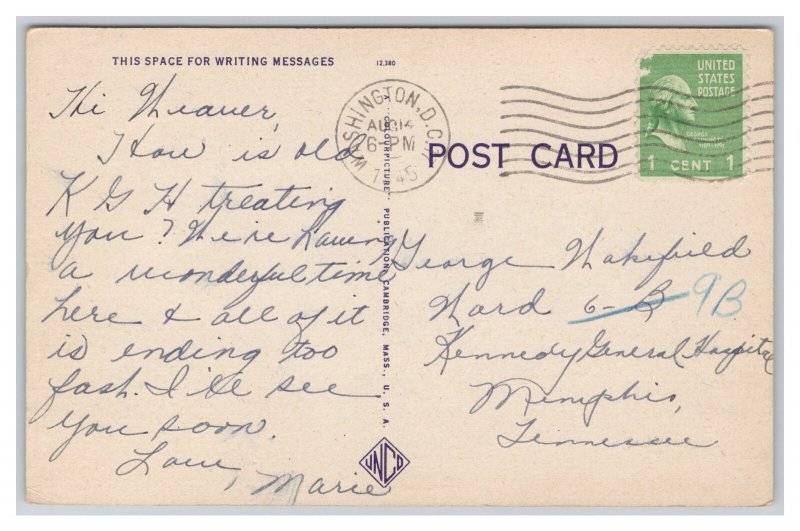 THIS SPACE FOR WRITING MESSAGES
12,380
Hi Weaver,
How is old
K G H treating
you? We're having
a wonderful time
here & all of it
is ending too
fast. I'll see
you soon.
Love,
Marie
COLOURPICTURE PUBLICATION, CAMBRIDGE, MASS., U. S. A.
JNCO
WASHINGTON, D.C.
AUG 14
6-PM
1945
POST CARD
UNITED
STATES
POSTAGE
GEORGE
WASHINGTON
1789-1797
1 CENT 1
George Wakefield
Ward 6-B 9B
Kennedy General Hospital
Memphis,
Tennessee